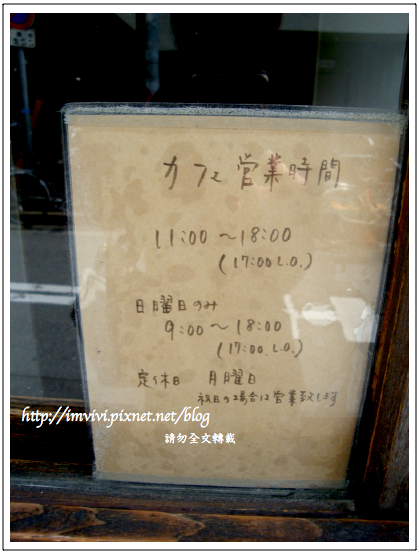 カフェ 営業時間
11:00 〜 18:00
(17:00 L.O.)
日曜日のみ
9:00 〜 18:00
(17:00 L.O.)
定休日 月曜日
祝日の場合は営業致します
http://imvivi.pixnet.net/blog
請勿全文轉載